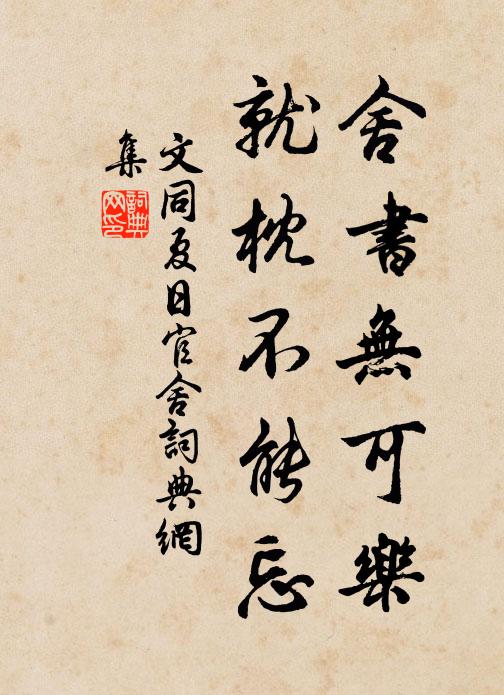 舍書無可樂
就枕不能忘
文同夏日官舍詞典網
集
詞典
网印